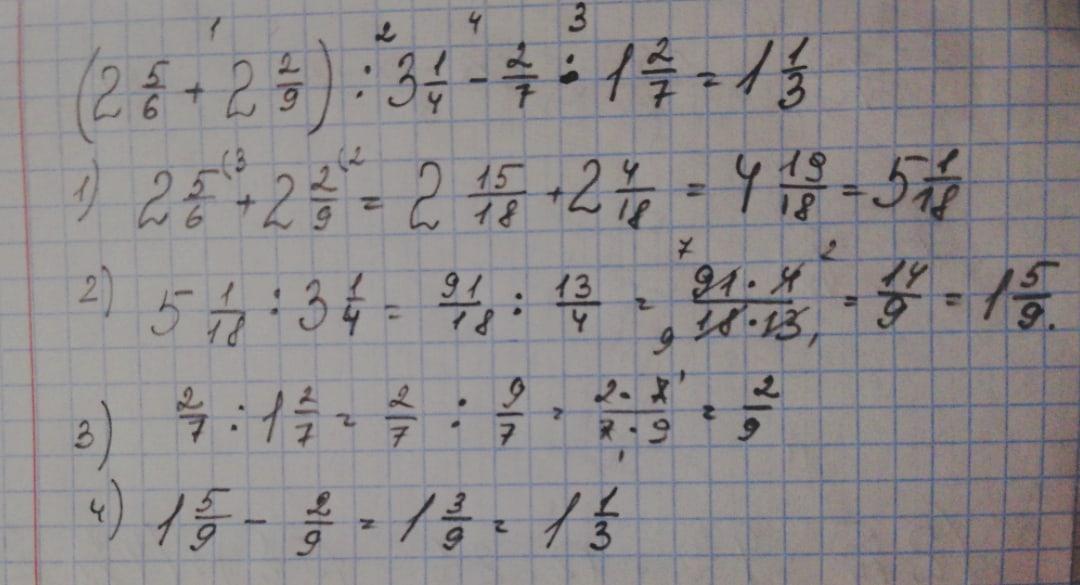 1 2 4 3
(2 5/6 + 2 2/9) : 3 1/4 - 2/7 : 1 2/7 = 1 1/3
1) 2 5/6 (3 + 2 2/9 (2 = 2 15/18 + 2 4/18 = 4 19/18 = 5 1/18
2) 5 1/18 : 3 1/4 = 91/18 : 13/4 = 7 91 · 4 2 / 9 18 · 13 1 = 14/9 = 1 5/9.
3) 2/7 : 1 2/7 = 2/7 : 9/7 = 2 · 7 1 / 7 1 · 9 = 2/9
4) 1 5/9 - 2/9 = 1 3/9 = 1 1/3